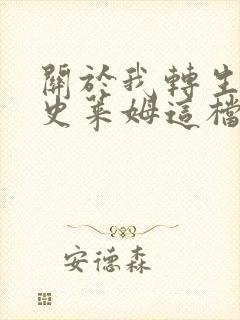 關於我轉生
史萊姆這檔
安德森